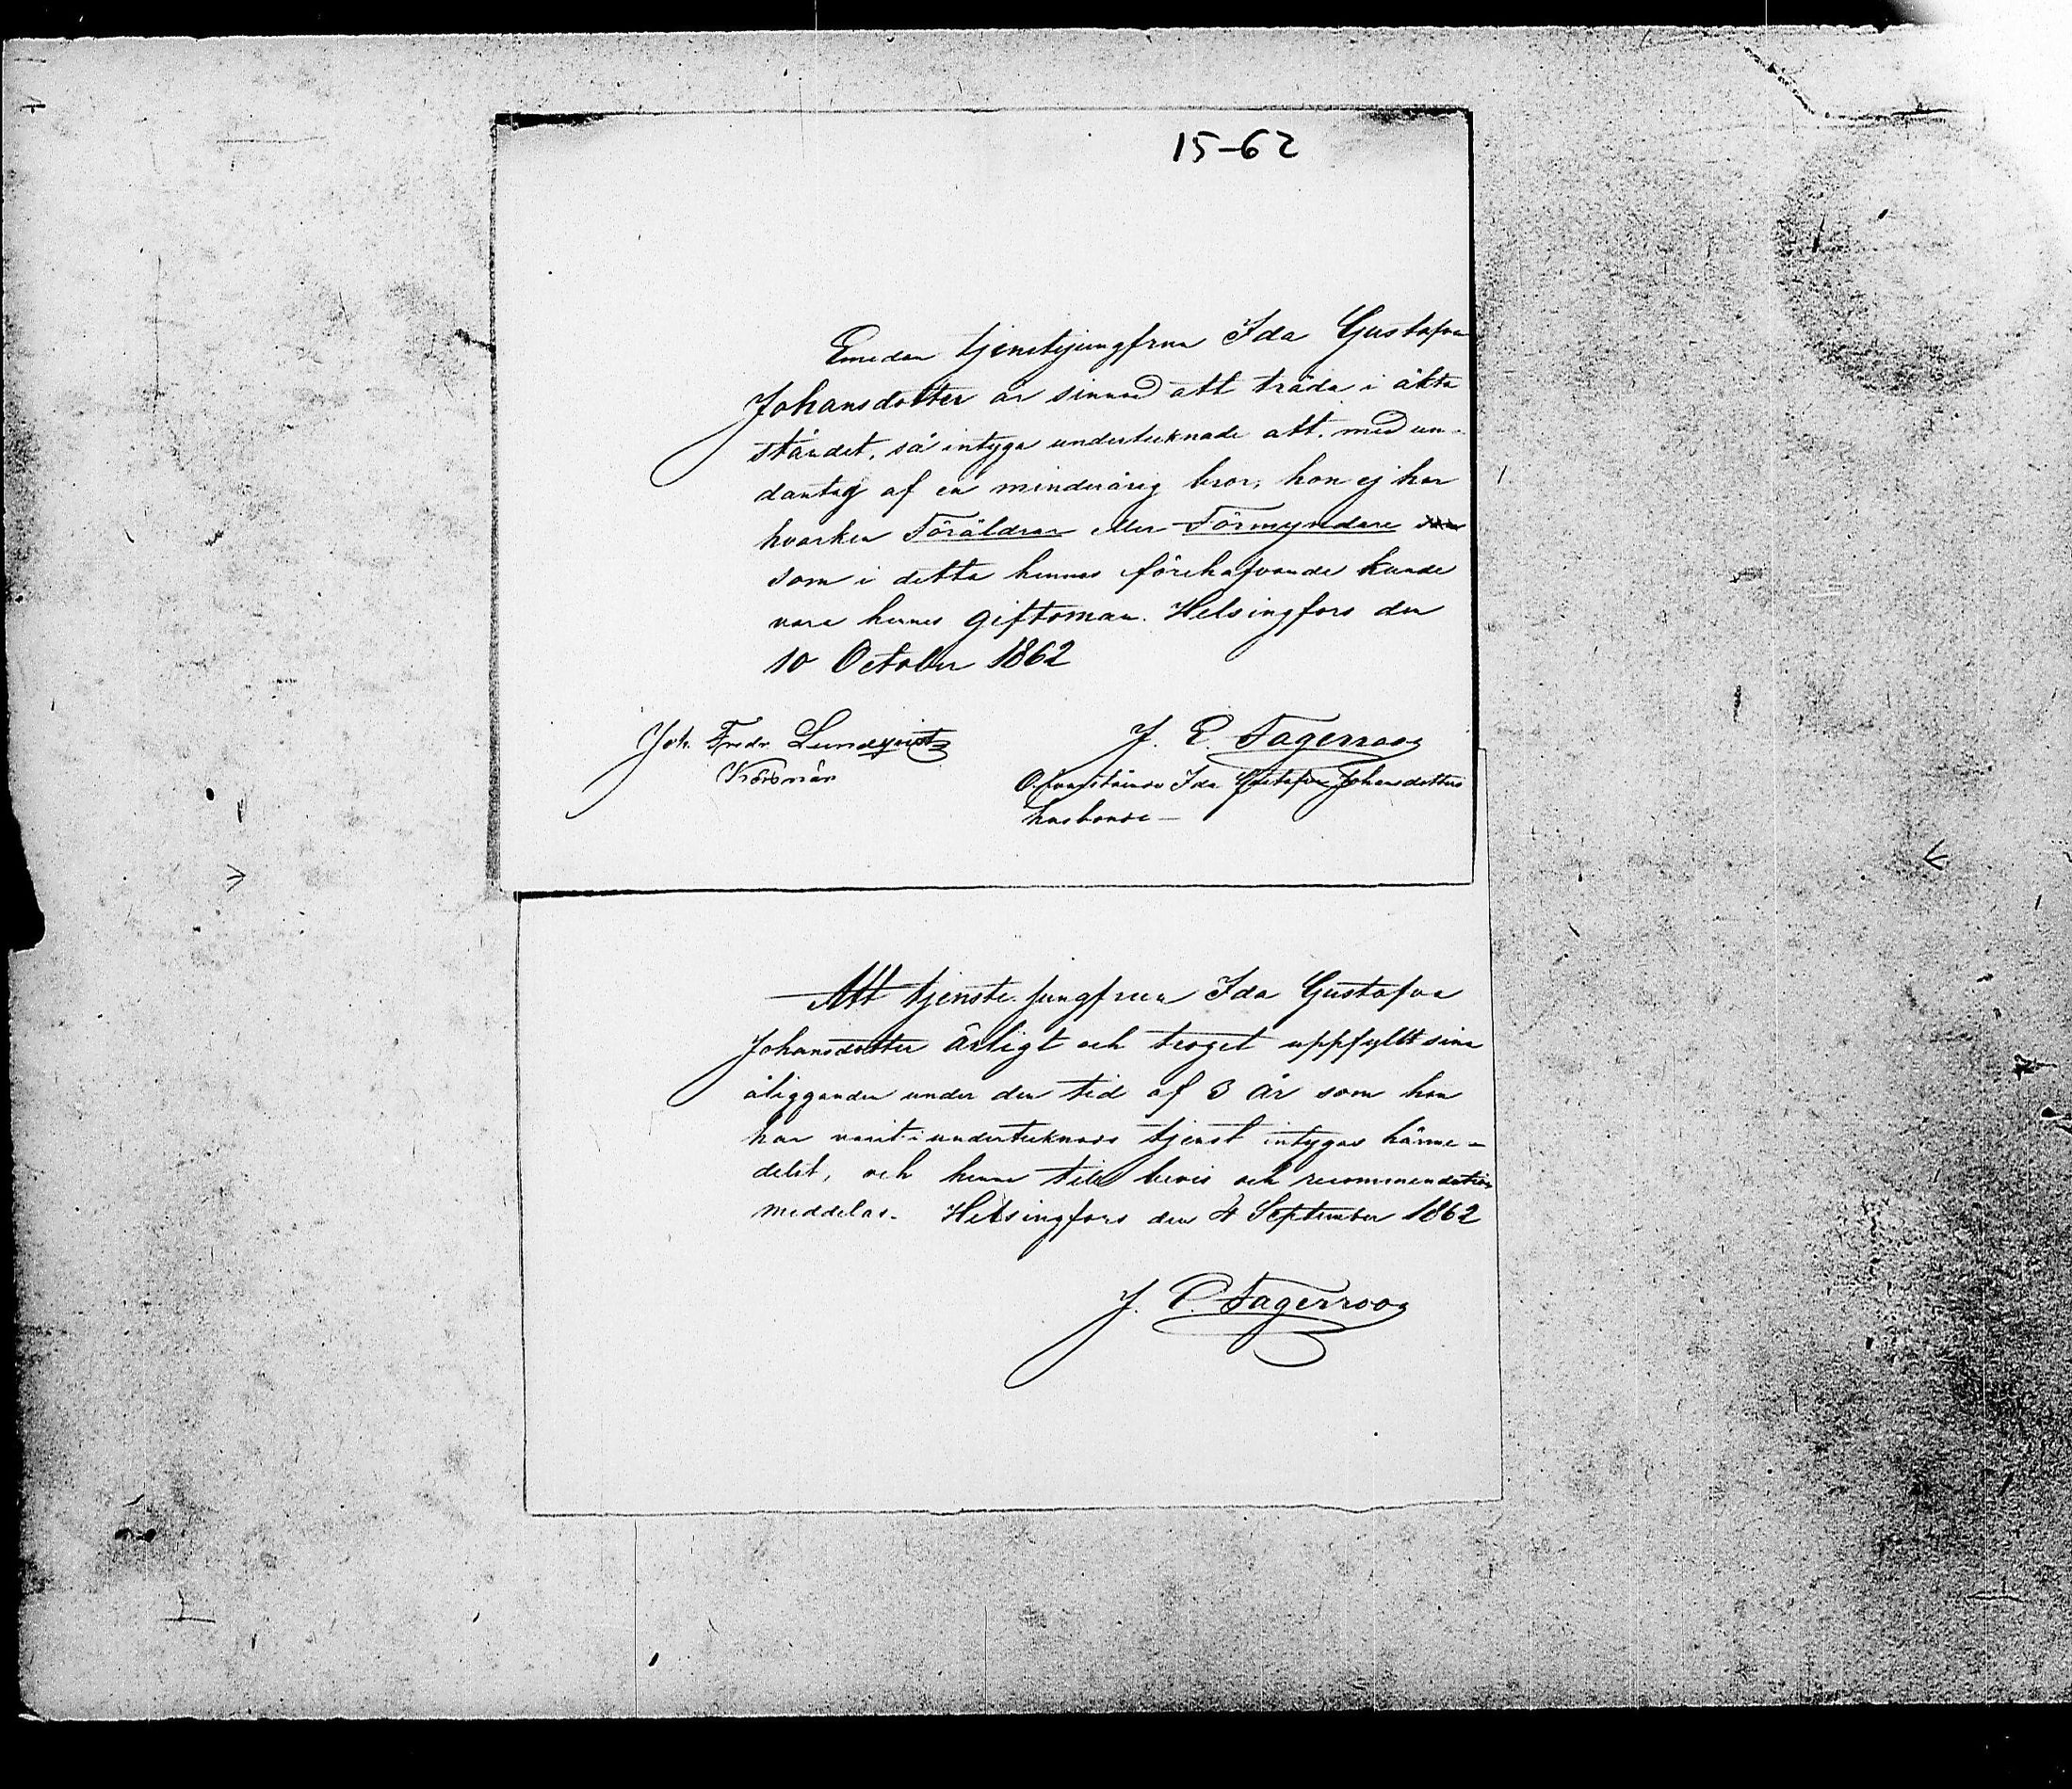 15-62
Emedan tjenstejungfrun Ida Gustafva
Johansdotter är sinnad att träda i äkta
ståndet, så intyga undertecknade att, med un-
dantag af en minderårig bror, hon ej har
hvarken Föräldrar eller Förmyndare som
som i detta hennes förehafvande kunde
vara hennes giftoman. Helsingfors den
10 October 1862
Joh. Fredr. Lundqvist
J. E. Fagerroos
Ofvanstående Ida Gustafva Johansdotters
husbonde —
Att tjenste jungfrun Ida Gustafva
Johansdotter ärligt och troget uppfyllt sina
åligganden under den tid af 3 år som hon
har varit i undertecknads tjenst intygas härme-
delst, och henne till bevis och recommendation
meddelas. Helsingfors den 4 September 1862
J. E. Fagerroos